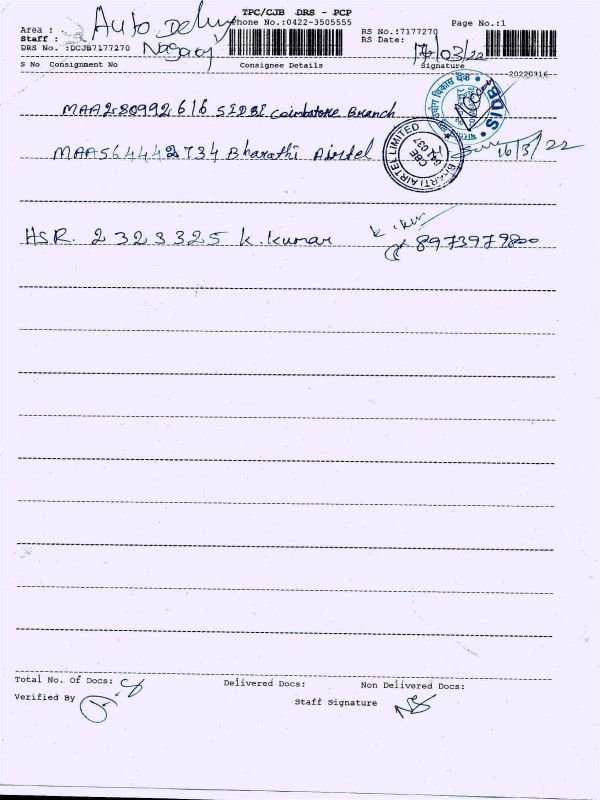 TPC/CJB DRS - PCP
Area : Auto Delivery Phone No.:0422-3505555 RS No.:7177270 Page No.:1
Staff : Nagaraj RS Date: 17/03/22
DRS No. :DCJB7177270
S No Consignment No Consignee Details Signature
20220316
MAA280992616 SIDBI Coimbatore Branch
SIDBI
MAA564442734 Bharathi Airtel 16/3/22
BHARTI AIRTEL LIMITED
CBE
641 037
HSR. 2323325 K. Kumar K. Kum
8973979800
Total No. Of Docs: Delivered Docs: Non Delivered Docs:
Verified By Staff Signature